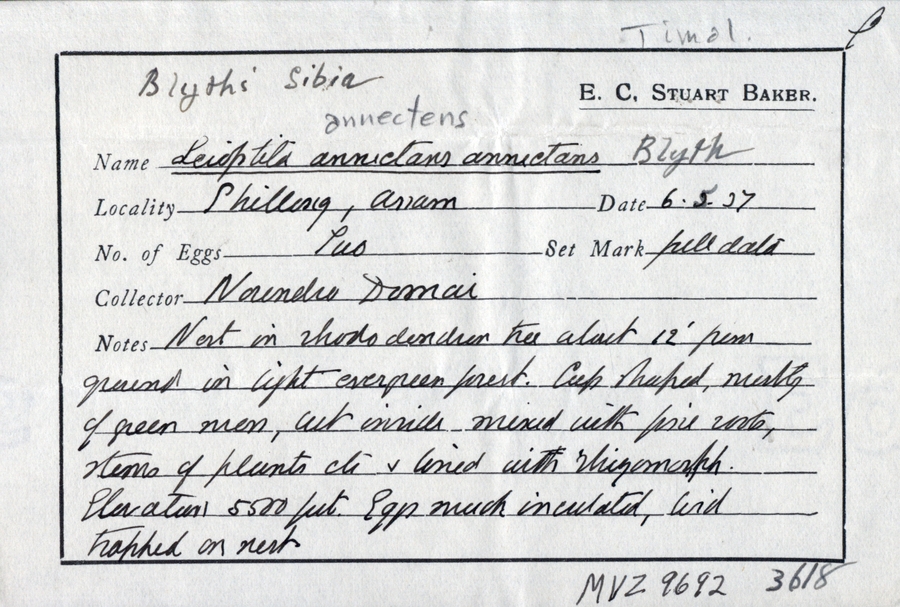 Timal.
Blyths Sibia
E. C. STUART BAKER.
annectens
Name Leioptila annectans annectans Blyth
Locality Shillong, Assam Date 6. 5. 37
No. of Eggs Two Set Mark full data
Collector Norendro Domai
Notes Nest in rhododendron tree about 12' from
ground in light evergreen forest. Cup shaped, mostly
of green moss, but inside mixed with fine roots,
stems of plants etc & lined with rhizomorph.
Elevation 5500 feet. Eggs much incubated, bird
trapped on nest
MVZ 9692 3618